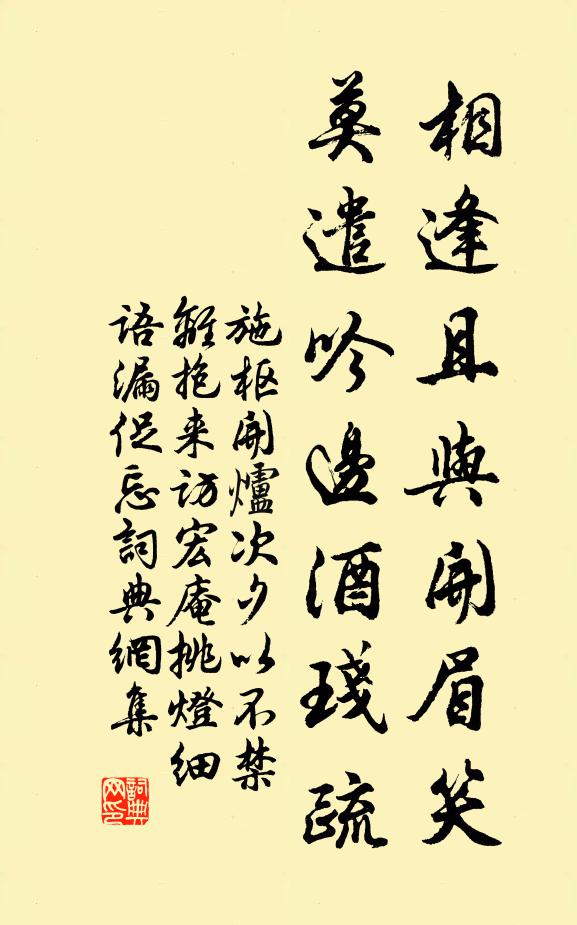 相逢且與開眉笑
莫遣吟邊酒琖疏
施枢開爐次夕以不禁
離抱来訪宏庵挑燈細
語漏促忘詞典網集
詞典网印